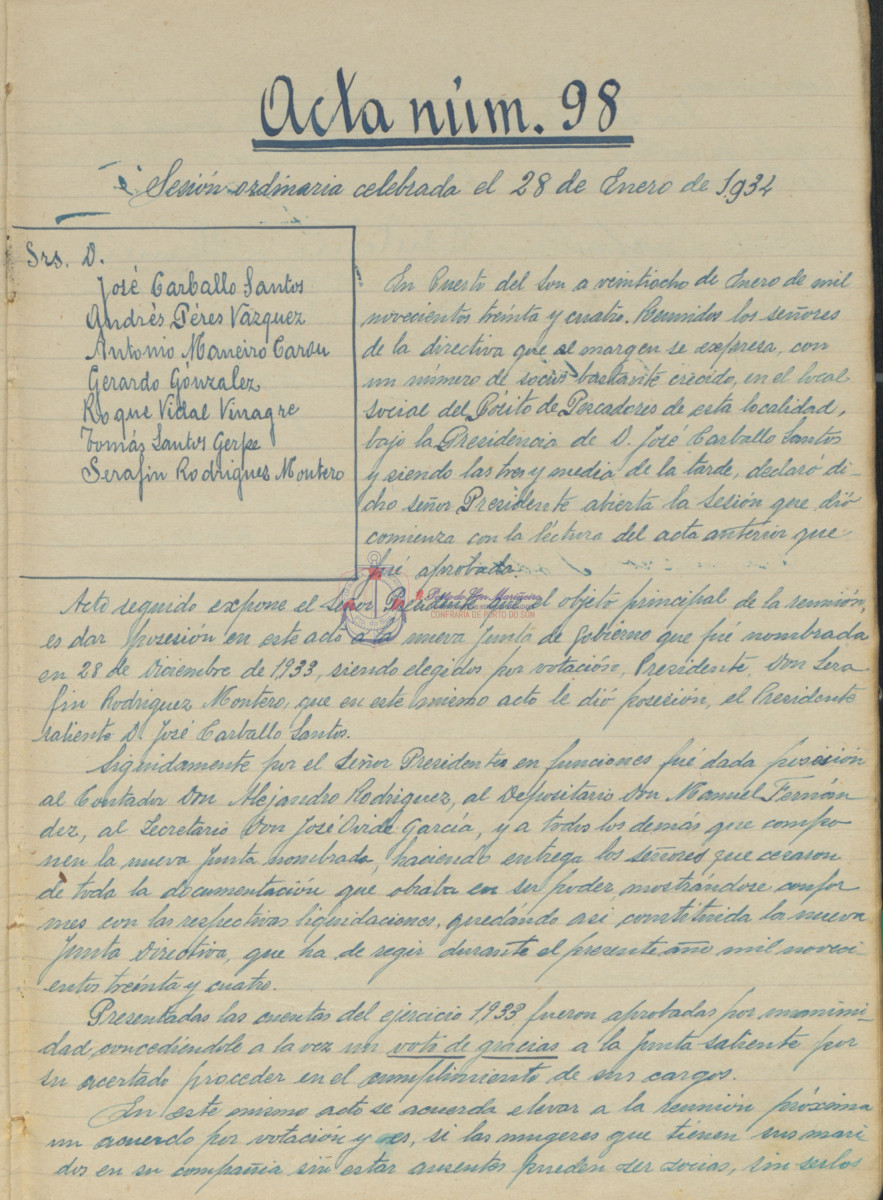 Acta núm. 98
Sesión ordinaria celebrada el 28 de Enero de 1934
Srs. D.
José Carballo Santos
Andrés Péres Vazquez
Antonio Maneiro Carou
Gerardo Gónzalez
Roque Vidal Vinagre
Tomás Santos Gerpe
Serafin Rodriguez Montero
En Puerto del Son a veintiocho de Enero de mil
novecientos treinta y cuatro. Reunidos los señores
de la directiva que al margen se expresa, con
un número de socios bastante crecido, en el local
social del Pósito de Pescadores de esta localidad,
bajo la Presidencia de D. José Carballo Santos
y siendo las tres y media de la tarde, declaró di-
cho señor Presidente abierta la sesión que dió
comienza con la léctura del acta anterior que
fué aprobada.
Acto seguido expone el Señor Presidente que el objeto principal de la reunión,
es dar posesión en este acto a la nueva Junta de Gobierno que fué nombrada
en 28 de Diciembre de 1933, siendo elegidos por votación, Presidente, Don Sera
fin Rodriguez Montero, que en este mismo acto le dió posesión, el Presidente
saliente D. José Carballo Santos.
Siguidamente por el Señor Presidente en funciones fué dada posesión
al Contador Don Alejandro Rodriguez, al Depositario Don Manuel Fernán
dez, al Secretario Don José Ovide García, y a todos los demás que compo
nen la nueva Junta nombrada, haciendo entrega los señores que cesaron
de toda la documentación que obraba en su poder, mostrándose confor
mes con las respectivas liquidaciones, quedándo así constituida la nueva
Junta Directiva, que ha de regir durante el presente año mil noveci-
entos treinta y cuatro.
Presentadas las cuentas del ejercicio 1933 fueron aprobadas por unanimi-
dad, concediéndole a la vez un voto de gracias a la Junta saliente por
su acertado proceder en el cumplimiento de sus cargos.
En este mismo acto se acuerda elevar a la reunión próxima
un acuerdo por votación y es, si las mugeres que tienen sus mari
dos en su compañia sin estar ausentes pueden ser socias, sin serlos
CONFRARÍA DE PORTO DO SON